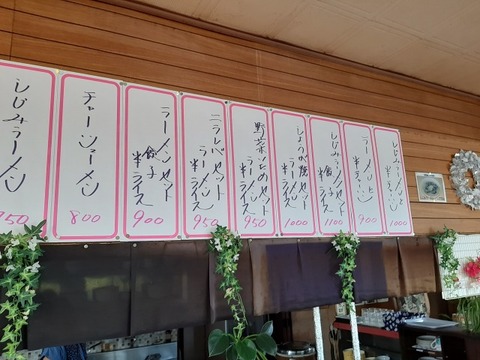 しじみラーメンと
1000
ラーメンと
900
しじみラーメンセット
餃子
半ライス
1100
しょうが焼セット
ラーメン
半ライス
1000
野菜いためセット
ラーメン
半ライス
950
ニラレバセット
ラーメン
半ライス
950
ラーメンセット
餃子
半ライス
900
チャーシューメン
800
しじみラーメン
950